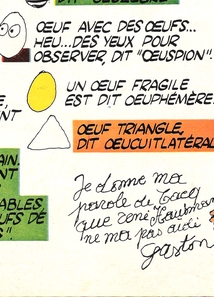 ŒUF AVEC DES ŒUFS...
HEU...DES YEUX POUR
OBSERVER, DIT "ŒUSPION".
UN ŒUF FRAGILE
EST DIT ŒUPHÉMÈRE.
ŒUF TRIANGLE,
DIT ŒUCUITLATÉRAL
AIN.
ENT
ABLES.
UFS DE
S".
Je donne ma
parole de
que rené Hausman
ne m'a pas aidé
gaston